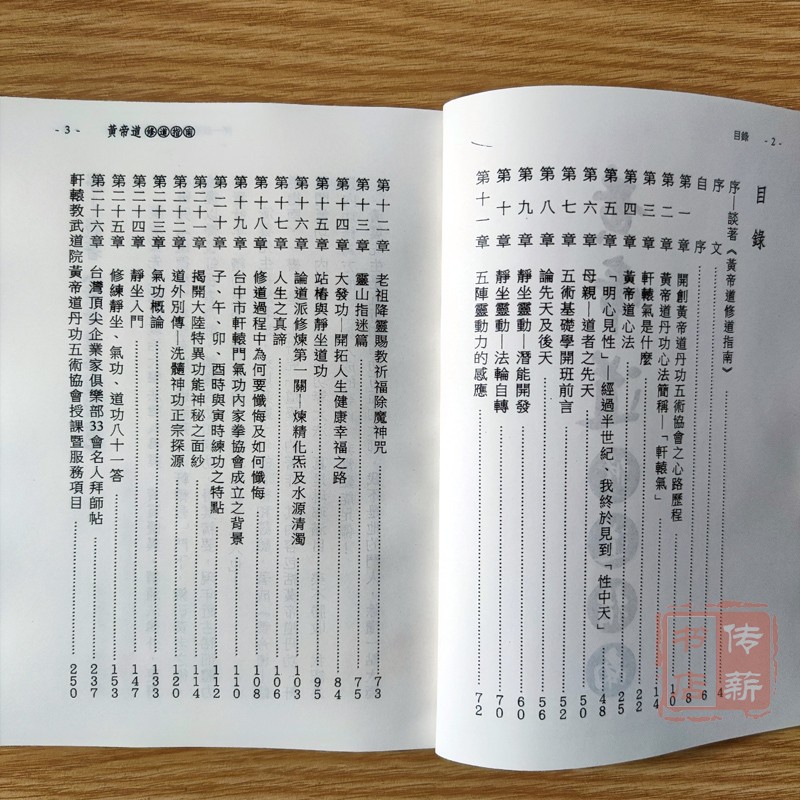 目錄 - 2 -
目錄
序—談著《黃帝道修道指南》 4
序文 6
自序 8
第一章 開創黃帝道丹功五術協會之心路歷程 10
第二章 黃帝道丹功心法簡稱—「軒轅氣」 14
第三章 軒轅氣是什麼 22
第四章 黃帝道心法 25
第五章 「明心見性」—經過半世紀、我終於見到「性中天」 48
第六章 母親—道者之先天 50
第七章 五術基礎學開班前言 52
第八章 論先天及後天 56
第九章 靜坐靈動—潛能開發 60
第十章 靜坐靈動—法輪自轉 70
第十一章 五陣靈動力的感應 72
- 3 - 黃帝道修道指南
第十二章 老祖降靈賜教祈福除魔神咒 73
第十三章 靈山指迷篇 75
第十四章 大發功—開拓人生健康幸福之路 84
第十五章 站樁與靜坐道功 95
第十六章 論道派修煉第一關—煉精化炁及水源清濁 103
第十七章 人生之真諦 106
第十八章 修道過程中為何要懺悔及如何懺悔 108
第十九章 台中市軒轅門氣功內家拳協會成立之背景 110
第二十章 子、午、卯、酉時與寅時練功之特點 112
第二十一章 揭開大陸特異功能神秘之面紗 114
第二十二章 道外別傳—洗髓神功正宗探源 120
第二十三章 氣功概論 133
第二十四章 靜坐入門 147
第二十五章 修練靜坐、氣功、道功八十一答 153
第二十六章 台灣頂尖企業家俱樂部33會名人拜師帖 237
軒轅教武道院黃帝道丹功五術協會授課暨服務項目 250
传薪书店